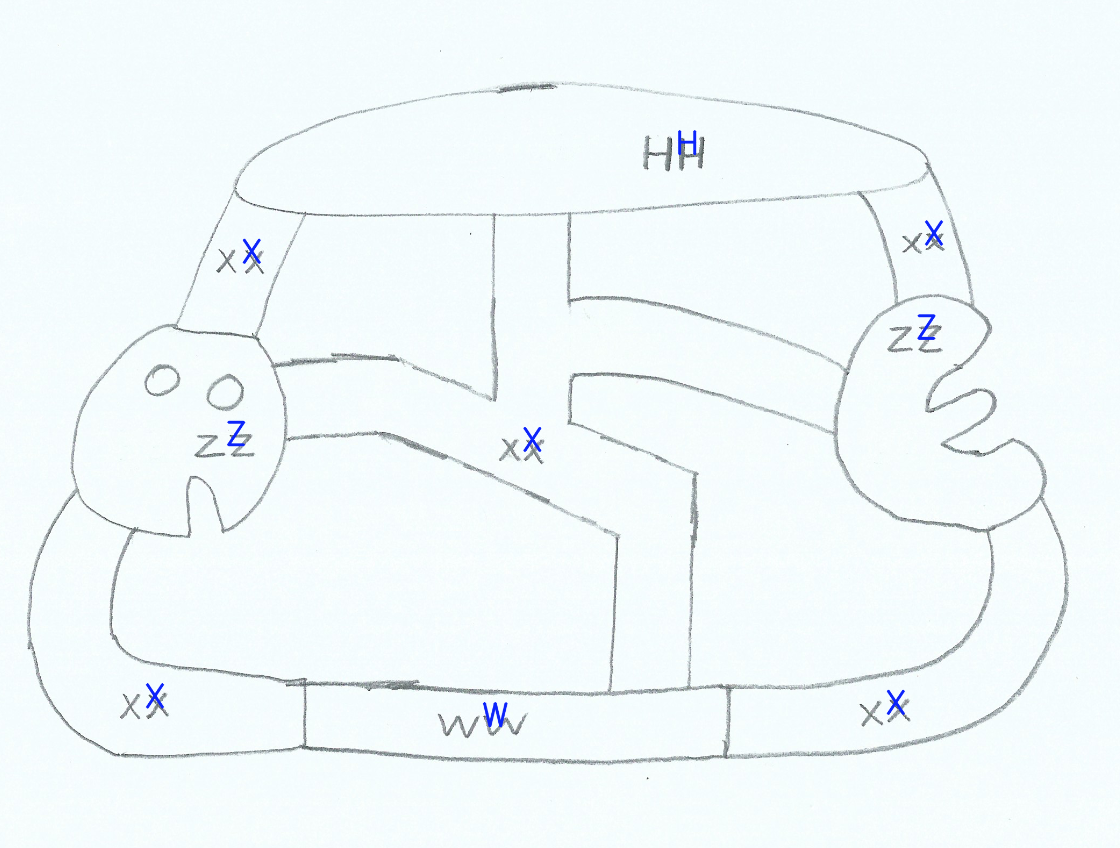 HH H
xx X
xx X
zz Z
zz Z
xx X
xx X
ww W
xx X